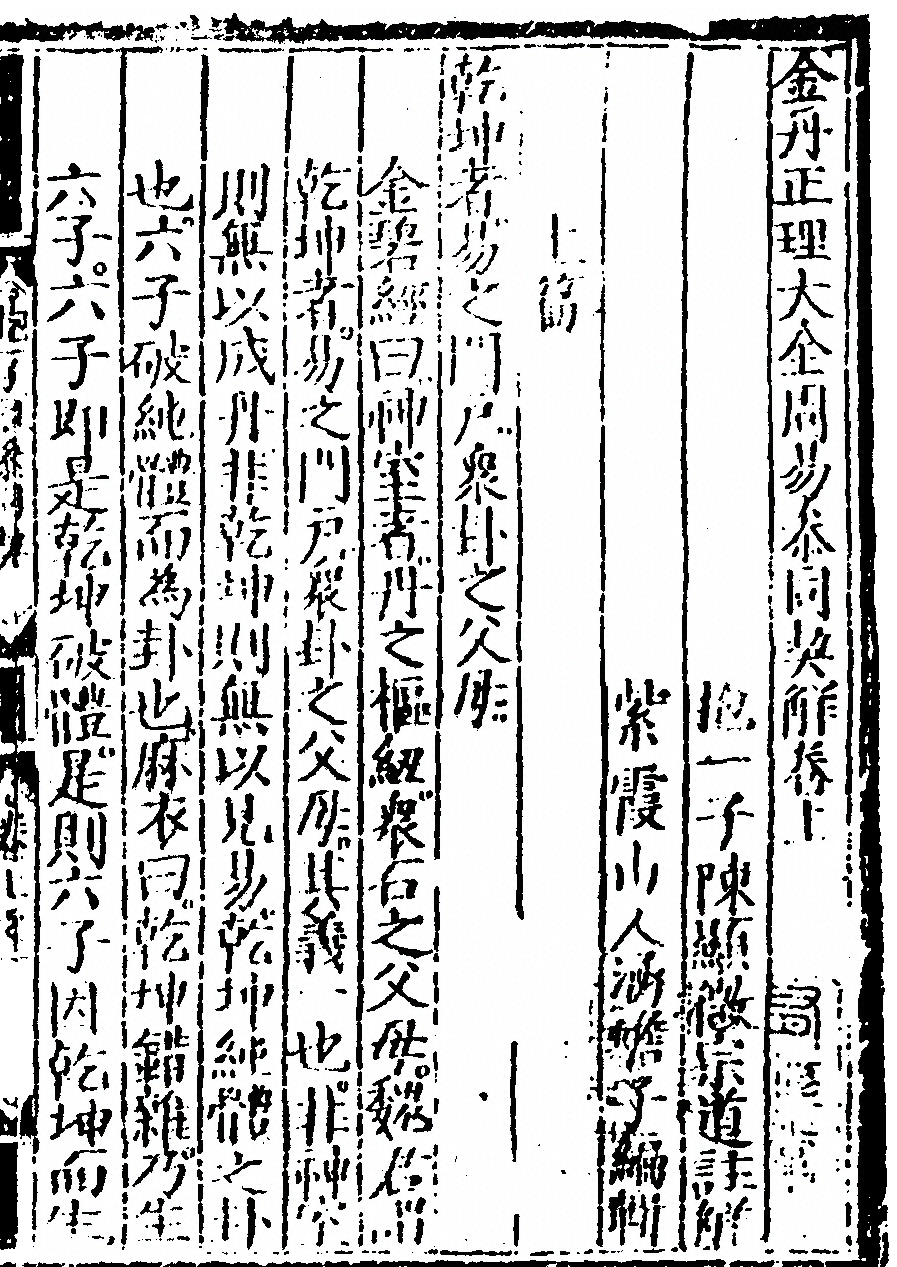 金丹正理大全周易叅同契解卷上
抱一子陳顯微宗道註解
紫霞山人涵蟾子編輯
上篇
乾坤者易之門戸衆卦之父母
金碧經曰神室者丹之樞紐衆石之父母魏君謂
乾坤者易之門戸衆卦之父母其義一也非神室
則無以成丹非乾坤則無以見易乾坤純體之卦
也六子破純體而為卦也麻衣曰乾坤錯雜乃生
六子六子即是乾坤破體是則六子因乾坤而生